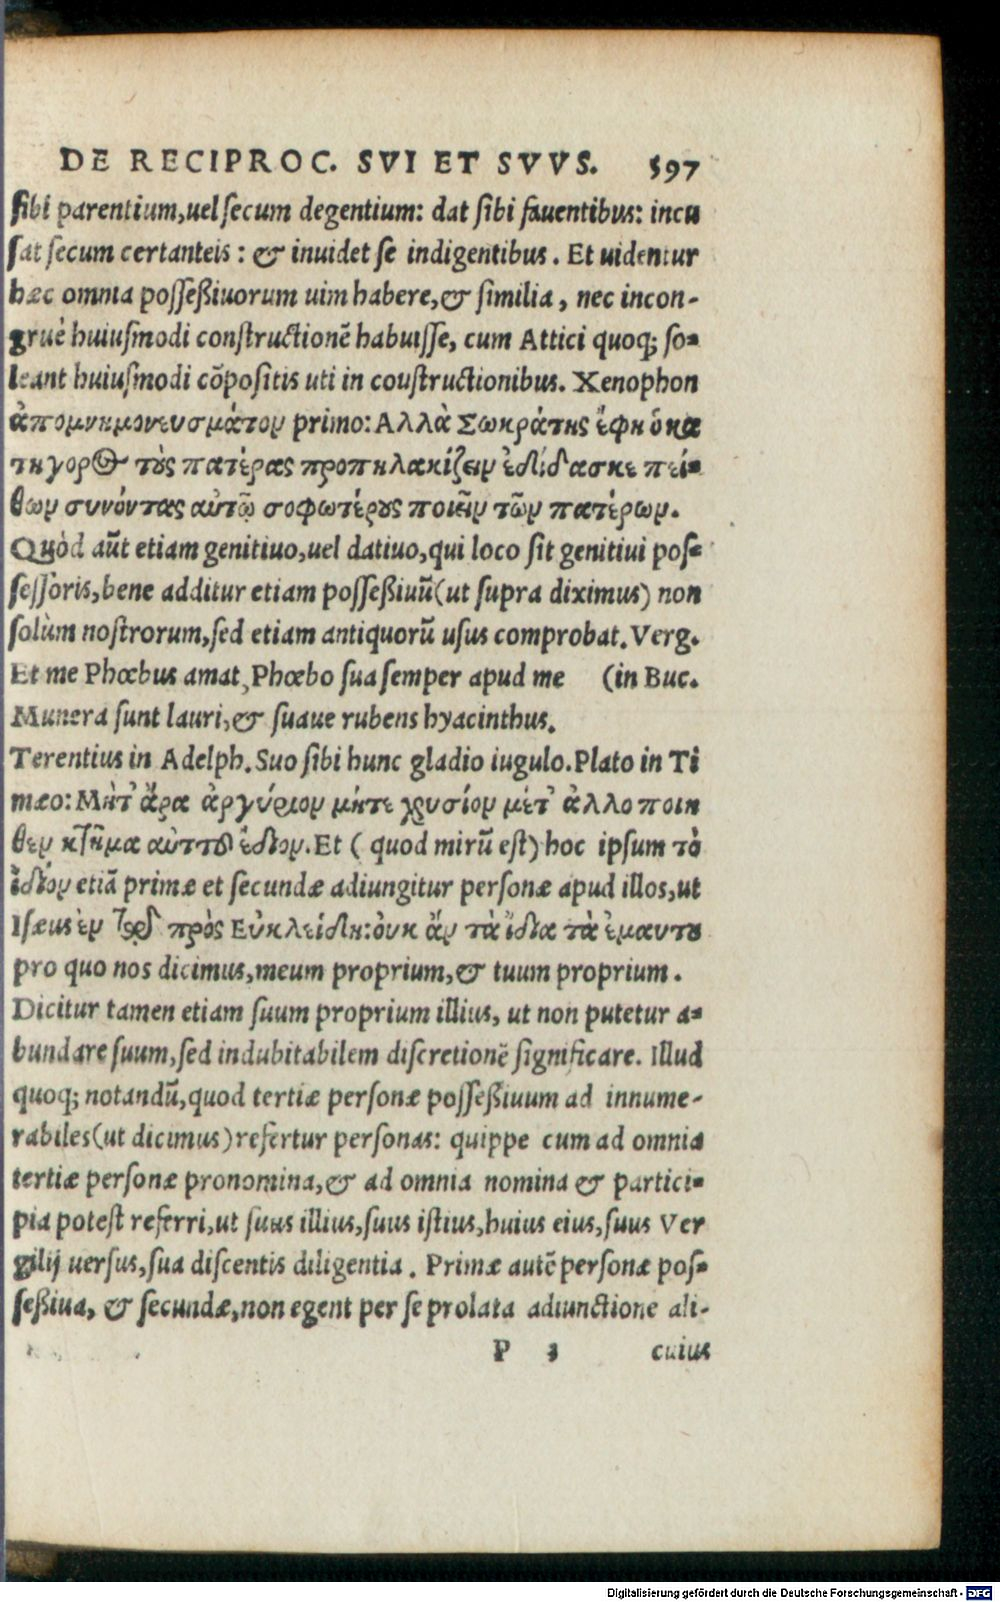 DE RECIPROC. SVI ET SVVS. 597
sibi parentium,uel secum degentium: dat sibi fauentibus: incu
sat secum certanteis: & inuidet se indigentibus. Et uidentur
hæc omnia possessiuorum uim habere,& similia, nec incon-
gruè huiusmodi constructionē habuisse, cum Attici quoq; so-
leant huiusmodi cōpositis uti in coustructionibus. Xenophon
ἀπομνημονευσμάτου primo: Αλλὰ Σωκράτης ἔφη ὁ κα
τηγορος τοὺς πατέρας προπηλακίζειν ἐδίδασκε πεί-
θων συνόντας αὐτῷ σοφωτέρους ποιεῖν τῶν πατέρων.
Quòd aūt etiam genitiuo,uel datiuo,qui loco sit genitiui pos-
sessoris,bene additur etiam possessiuū(ut supra diximus) non
solùm nostrorum,sed etiam antiquorū usus comprobat. Verg.
Et me Phœbus amat, Phœbo sua semper apud me (in Buc.
Munera sunt lauri,& suaue rubens hyacinthus.
Terentius in Adelph. Suo sibi hunc gladio iugulo. Plato in Ti
mæo: Μήτ' ἄρα ἀργύριον μήτε χρυσίον μὲτ' ἀλλο ποιη
θεν κτῆμα αὐττοῦ ἐδιον. Et ( quod mirū est) hoc ipsum τὸ
ἰδίον etiā primæ et secundæ adiungitur personæ apud illos,ut
Isæus ἐν πρὸς Εὐκλείδη: ὀυκ ἂν τὰ ἴδια τὰ ἐμαυτου
pro quo nos dicimus,meum proprium,& tuum proprium.
Dicitur tamen etiam suum proprium illius, ut non putetur a-
bundare suum,sed indubitabilem discretionē significare. Illud
quoq; notandū,quod tertiæ personæ possessiuum ad innume-
rabiles(ut dicimus)refertur personas: quippe cum ad omnia
tertiæ personæ pronomina,& ad omnia nomina & partici-
pia potest referri,ut suus illius,suus istius,huius eius,suus Ver
gilij uersus,sua discentis diligentia. Primæ autē personæ pos-
sessiua, & secundæ,non egent per se prolata adiunctione ali-
P 3 cuius
Digitalisierung gefördert durch die Deutsche Forschungsgemeinschaft - DFG